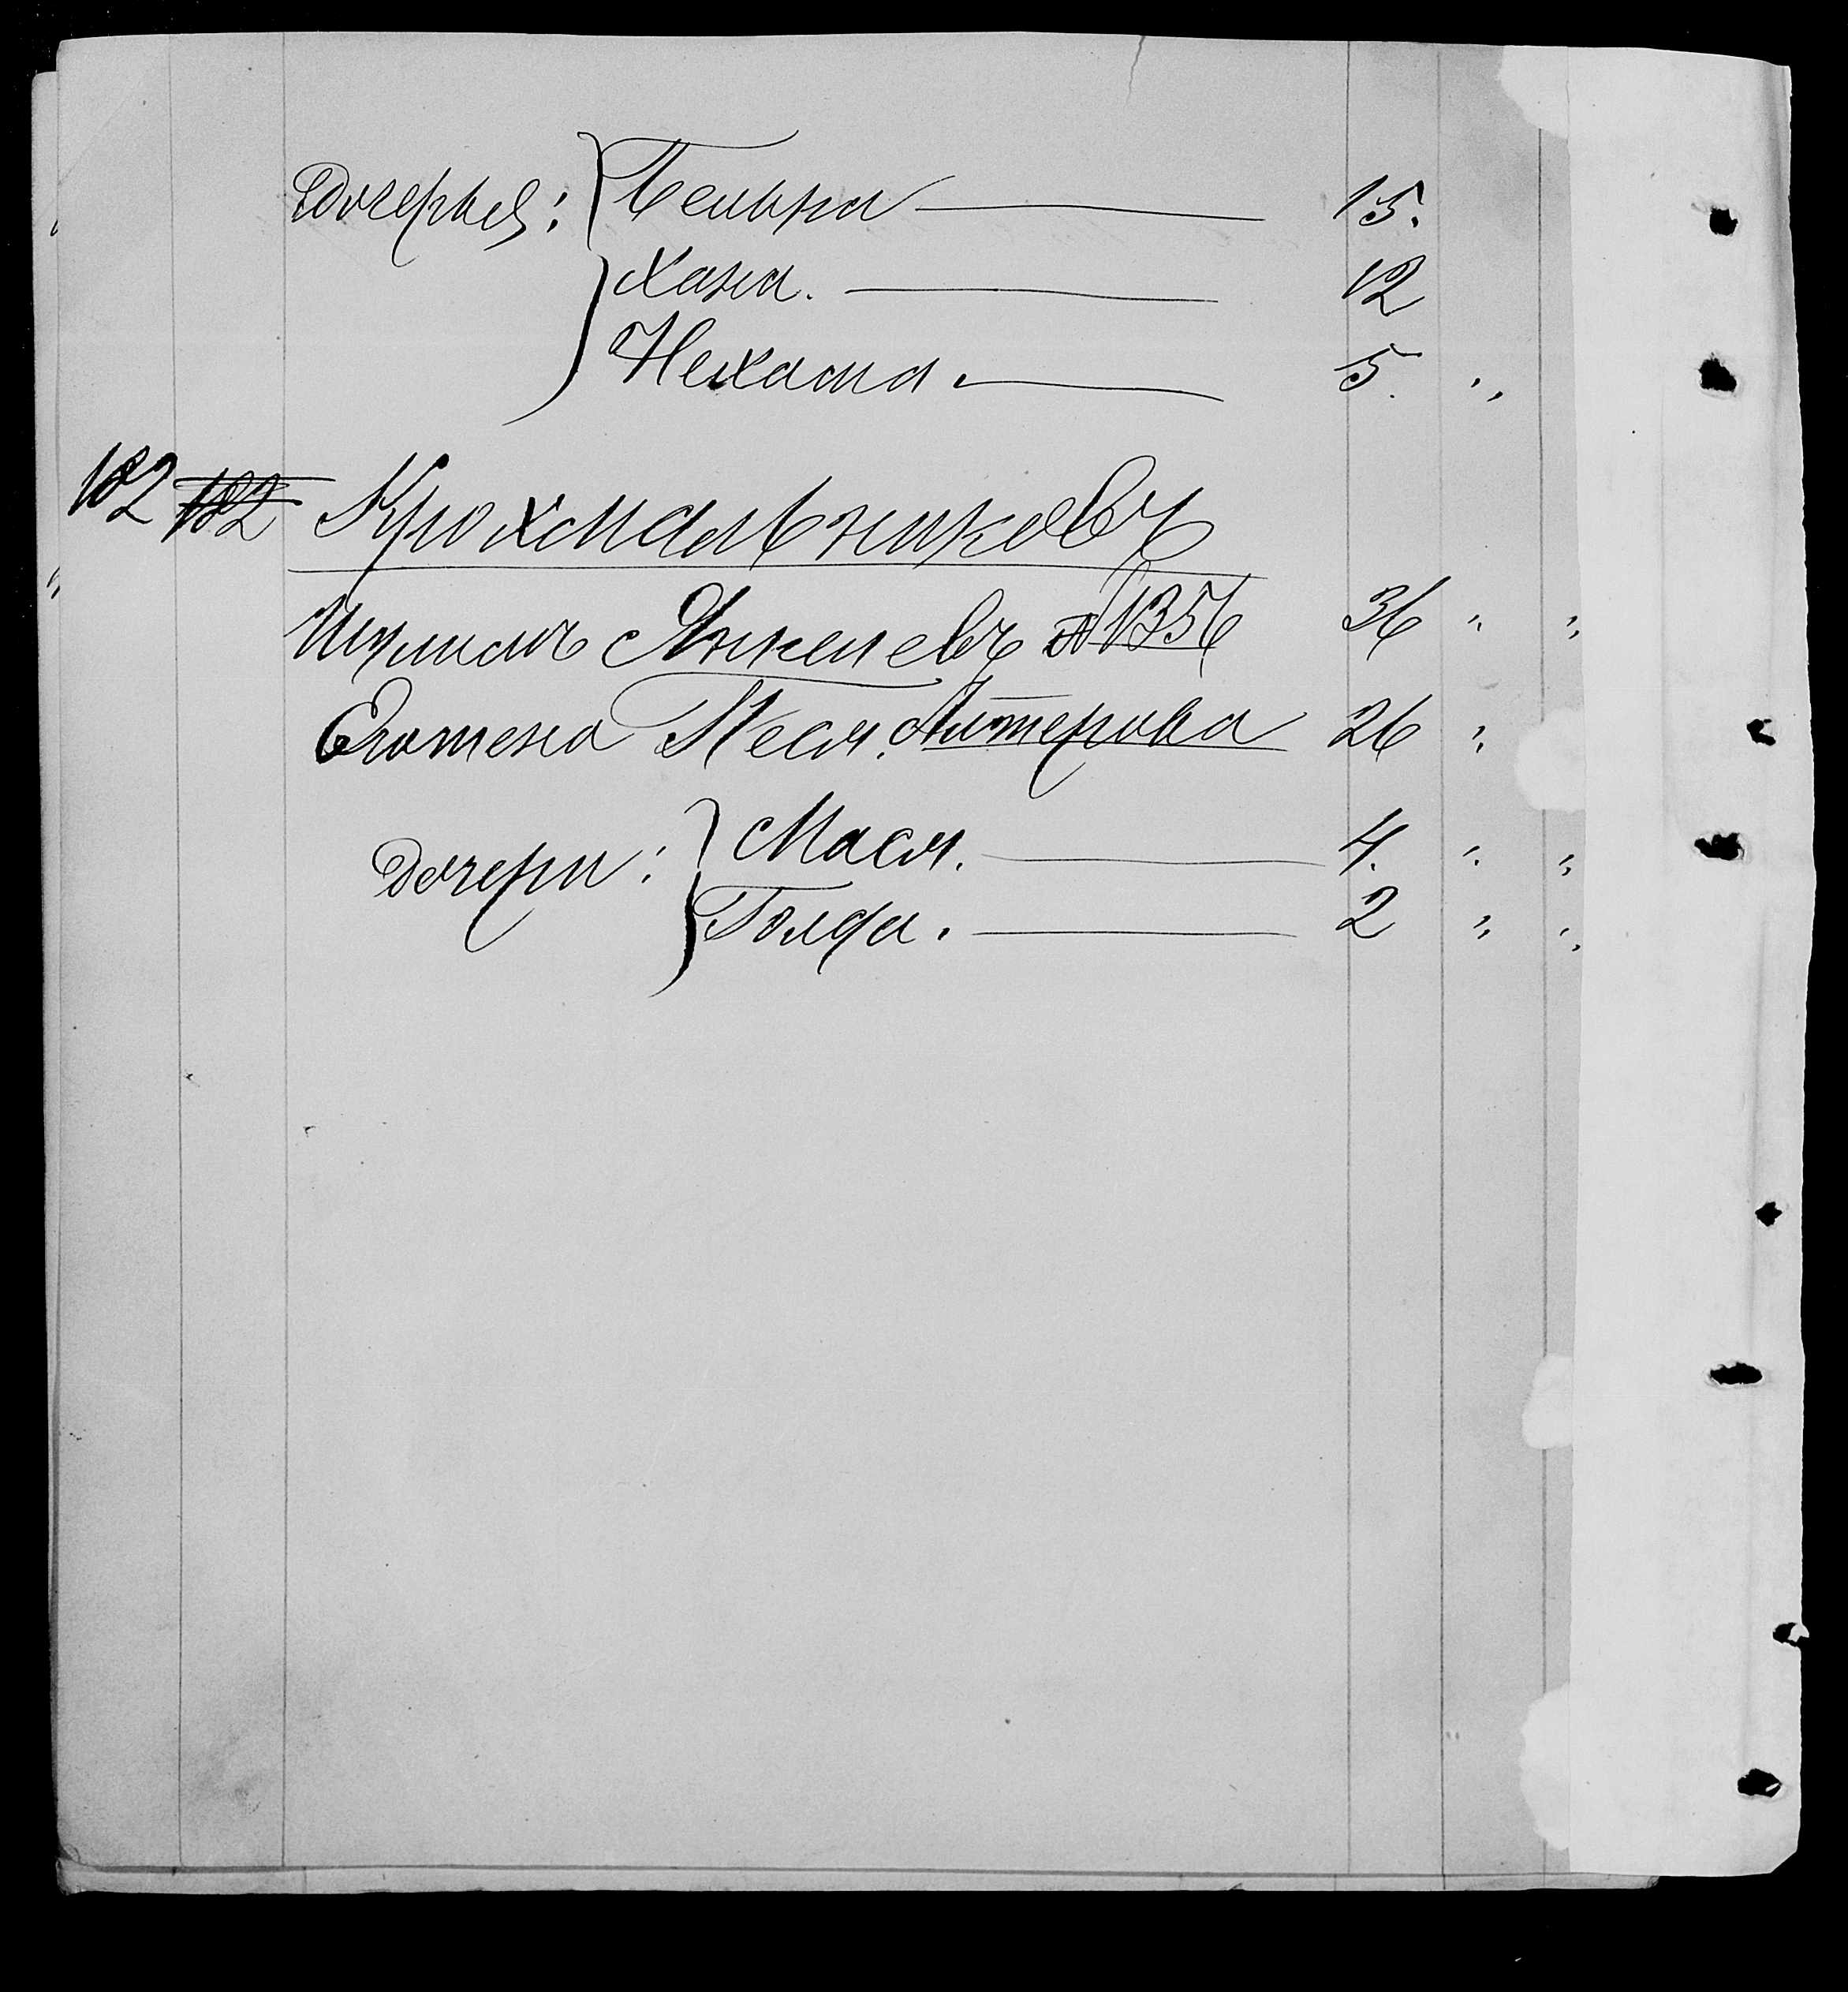 Дочерья: Бейня — 15.
Хана. — 12
Нехама. — 5. "
182 182 Крохмальниковъ
Шулимъ Янкелевъ №1356 36 " "
Его жена Песя. Литерова 26 "
Дочери: Мася. — 4. " "
Голда. — 2 " "